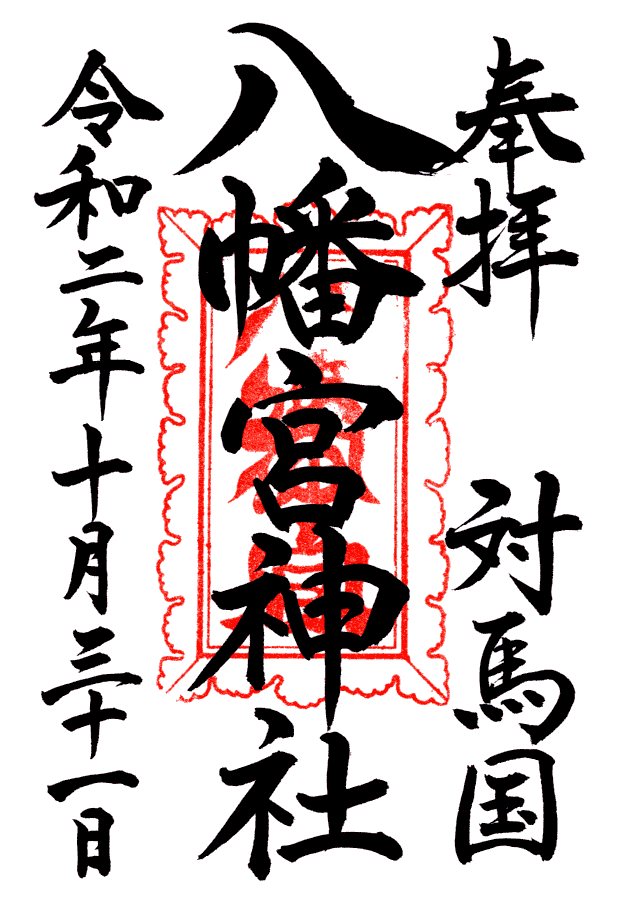 奉拝
対馬国
八幡宮神社
令和二年十月三十一日